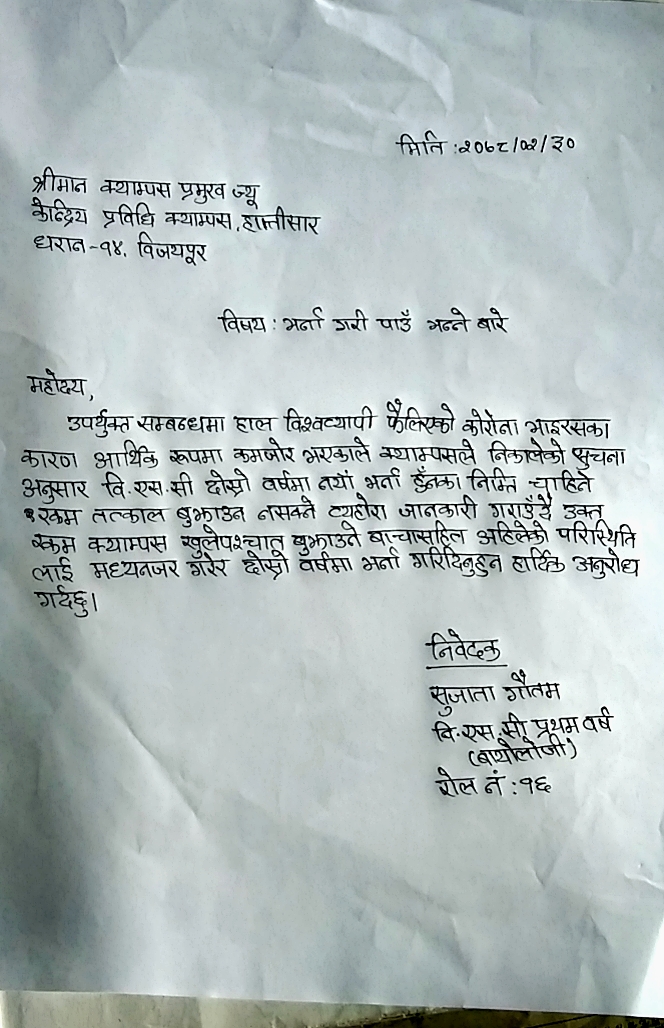 मिति : २०७८/०२/३०
श्रीमान क्याम्पस प्रमुख ज्यू
केन्द्रिय प्रविधि क्याम्पस, हात्तीसार
धरान-१४, विजयपूर
विषय : भर्ना गरी पाउँ भन्ने बारे
महोदय,
उपर्युक्त सम्बन्धमा हाल विश्वव्यापी फैलिएको कोरोना भाइरसका
कारण आर्थिक रूपमा कमजोर भएकाले क्याम्पसले निकालेको सुचना
अनुसार वि.एस.सी दोस्रो वर्षमा नयाँ भर्ना हुँनका निम्ति चाहिने
रकम तत्काल बुझाउन नसक्ने व्यहोरा जानकारी गराउँदै उक्त
रकम क्याम्पस खुलेपश्चात बुझाउने बाचासहित अहिलेको परिस्थिति
लाई मध्यनजर गरेर दोस्रो वर्षमा भर्ना गरिदिनुहुन हार्दिक अनुरोध
गर्दछु।
निवेदक
सुजाता गौतम
वि.एस.सी प्रथम वर्ष
(बायोलोजी)
रोल नं : १६